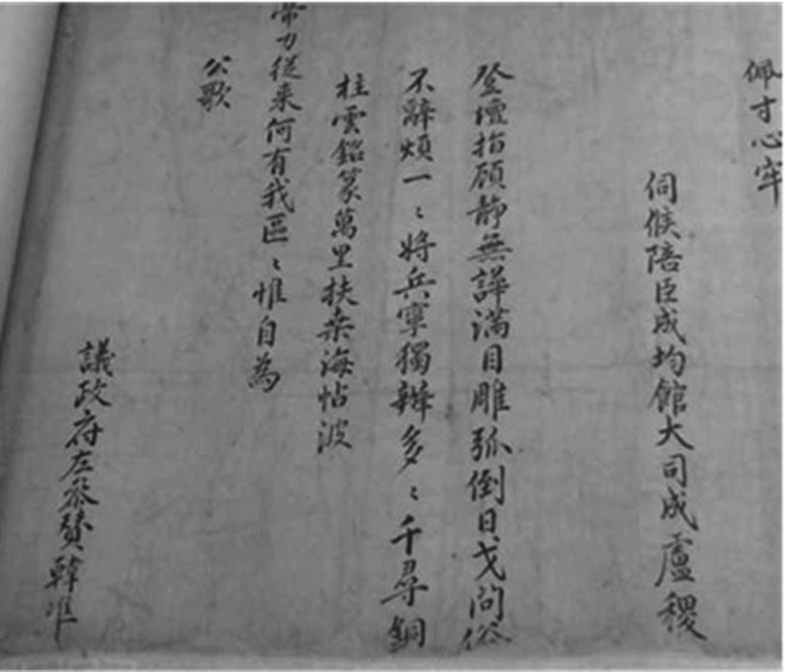 佩才心牢
伺候陪臣成均館大司成盧稷
登壇指顧静無譁滿目雕弧倒日戈問俗
不辭煩一〻將兵寧獨辦多〻千尋銅
柱雲銘篆萬里扶桒海帖波
帝力從来何有我區〻惟自為
公歌
議政府左叅賛韓准